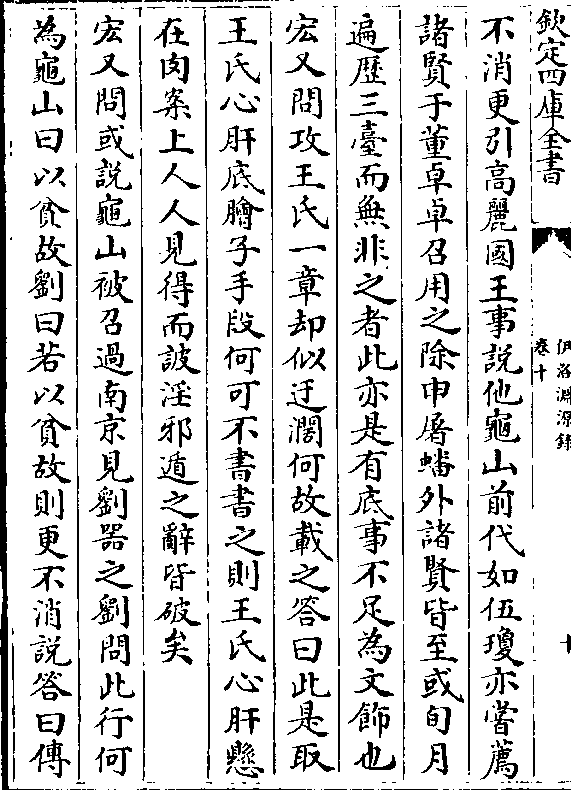 欽定四庫全書
伊洛淵源録
卷十
十
不消更引高麗國王事說他龜山前代如伍瓊亦嘗薦
諸賢于董卓卓召用之除申屠蟠外諸賢皆至或旬月
遍歷三臺而無非之者此亦是有底事不足為文飾也
宏又問攻王氏一章却似迂濶何故載之答曰此是取
王氏心肝底膾子手段何可不書書之則王氏心肝懸
在肉案上人人見得而詖淫邪遁之辭皆破矣
宏又問或説龜山被召過南京見劉器之劉問此行何
為龜山曰以貧故劉曰若以貧故則更不消説答曰傳